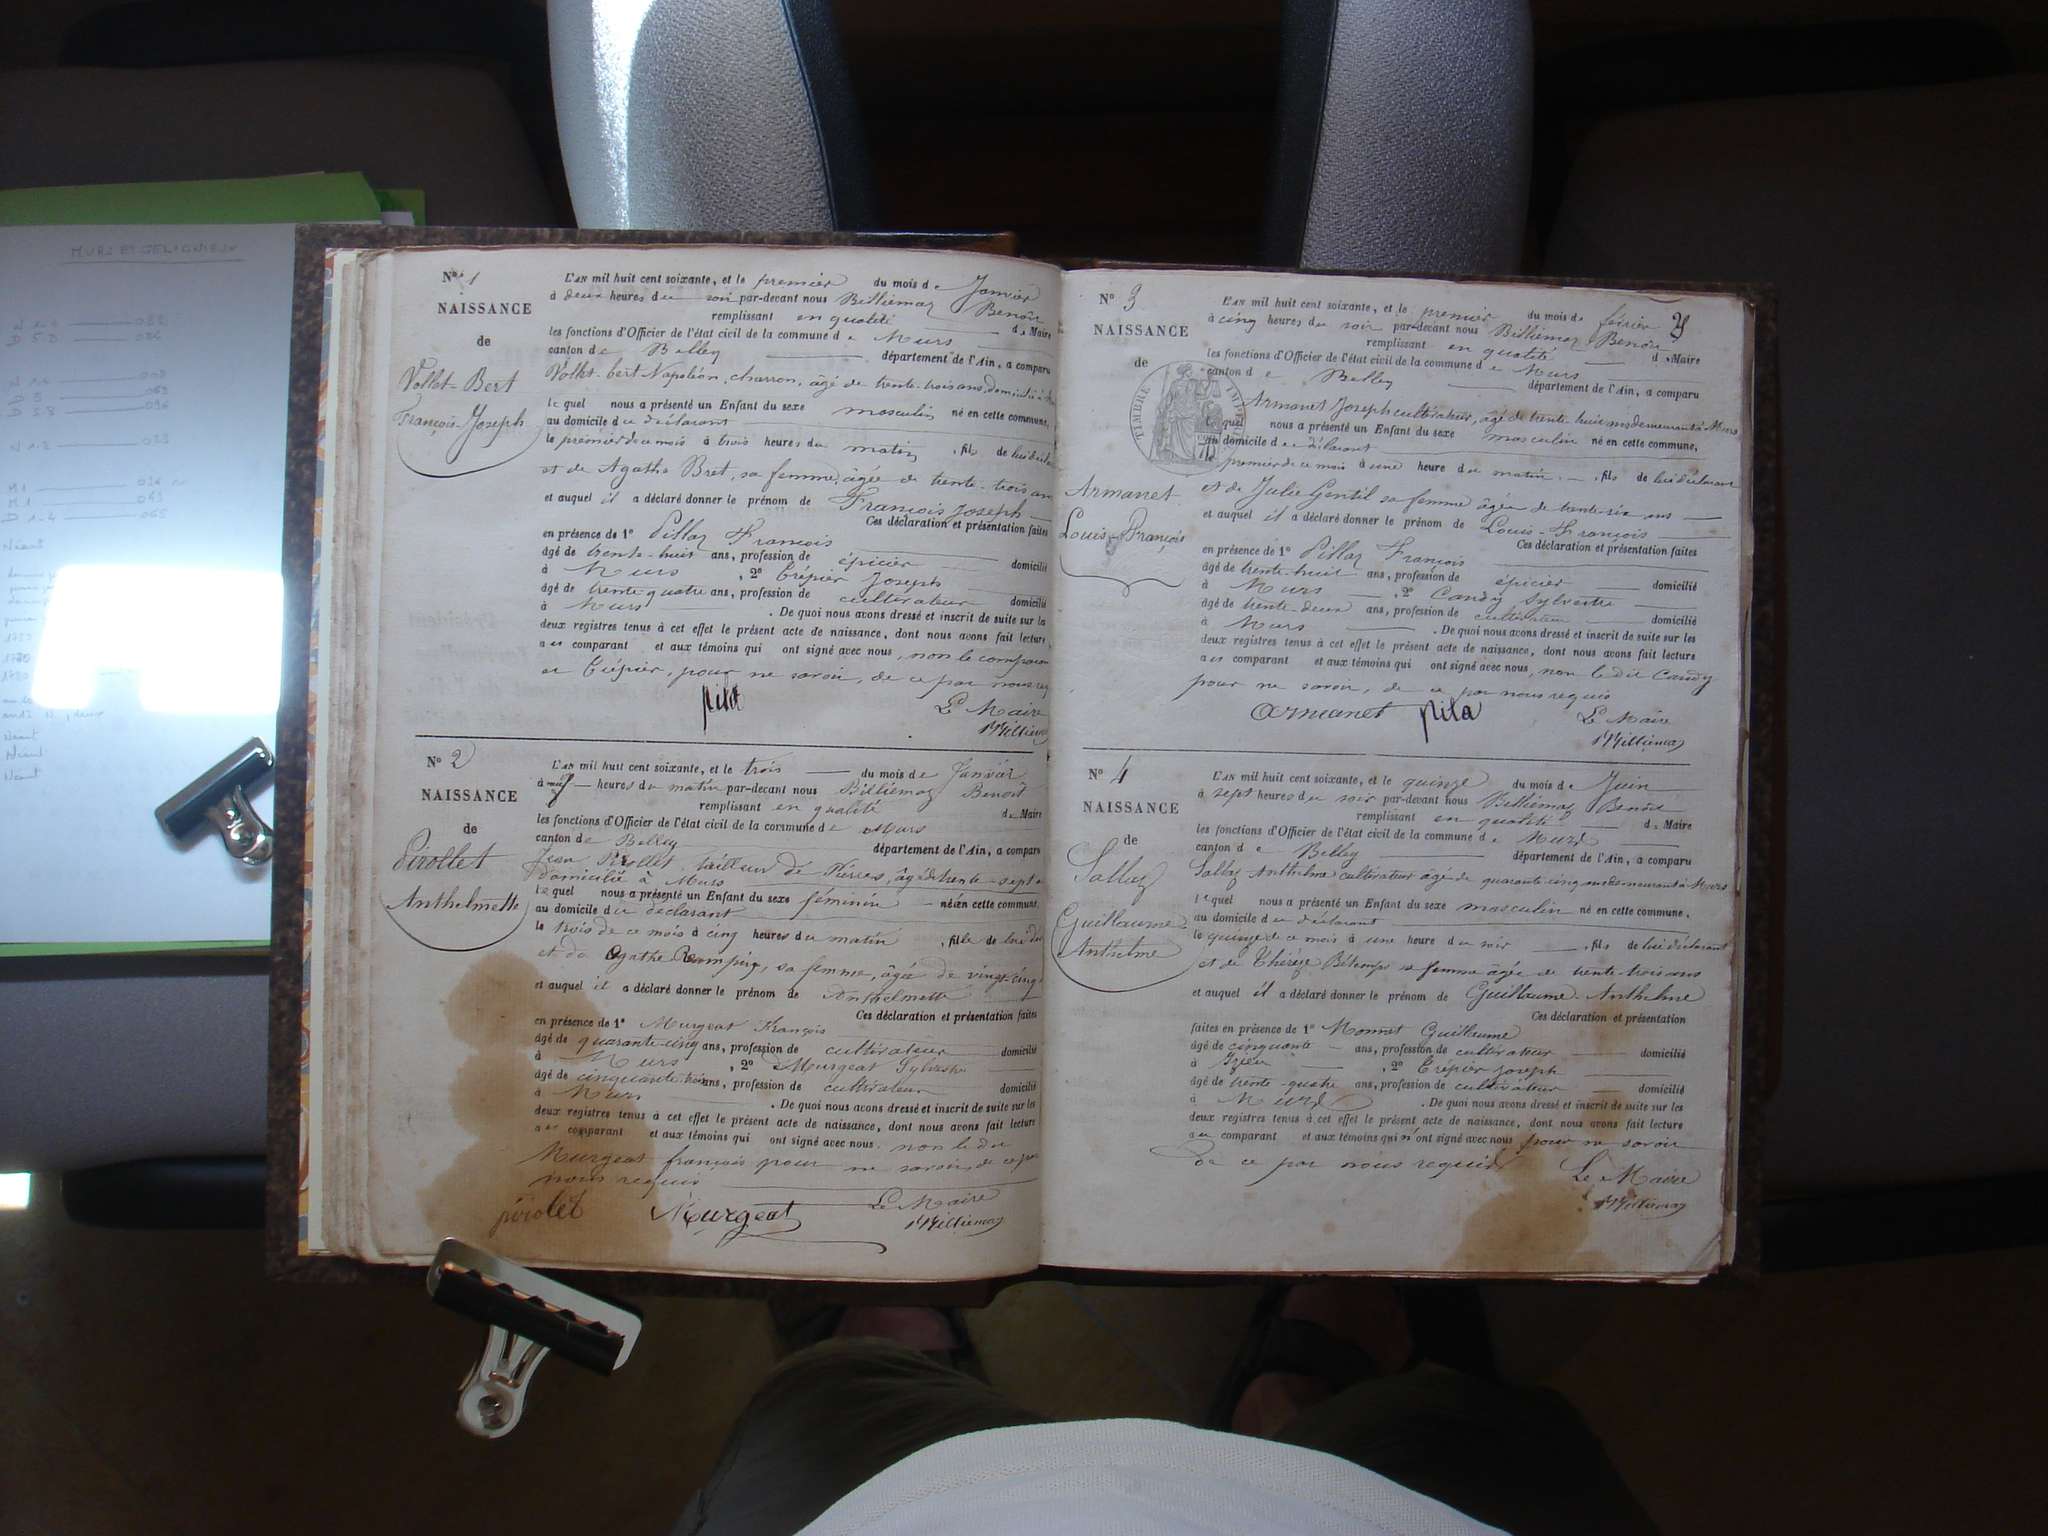 MURS ET GELIGNIEUX
Néant
Néant
Néant
Nº 1
NAISSANCE
de
Vollet-Bert
François-Joseph
L'AN mil huit cent soixante, et le premier du mois de Janvier
à deux heures du soir par-devant nous Billiémaz Benoît
remplissant en qualité de Maire
les fonctions d'Officier de l'état civil de la commune de Murs
canton de Belley département de l'Ain, a comparu
Vollet-bert Napoléon, charron, âgé de trente-trois ans, domicilié à
lequel nous a présenté un Enfant du sexe masculin né en cette commune,
au domicile du déclarant
le premier de ce mois à trois heures du matin, fils de lui décla
et de Agathe Bret, sa femme, âgée de trente-trois ans
et auquel il a déclaré donner le prénom de François Joseph
Ces déclaration et présentation faites
en présence de 1º Pillaz François
âgé de trente-huit ans, profession de épicier domicilié
à Murs, 2º Crépier Joseph
âgé de trente-quatre ans, profession de cultivateur domicilié
à Murs. De quoi nous avons dressé et inscrit de suite sur les
deux registres tenus à cet effet le présent acte de naissance, dont nous avons fait lecture
aux comparant et aux témoins qui ont signé avec nous, non le comparan
et Crépier, pour ne savoir, de ce par nous req
pila
Le Maire
Billiémaz
Nº 2
NAISSANCE
de
Pirollet
Anthelmette
L'AN mil huit cent soixante, et le trois du mois de Janvier
à neuf heures du matin par-devant nous Billiémaz Benoît
remplissant en qualité de Maire
les fonctions d'Officier de l'état civil de la commune de Murs
canton de Belley département de l'Ain, a comparu
Jean Pirollet, tailleur de Pierres, âgé de trente-sept
domicilié à Murs
lequel nous a présenté un Enfant du sexe féminin née en cette commune,
au domicile du déclarant
le trois de ce mois à cinq heures du matin, fille de lui dé
et de Agathe sa femme, âgée de vingt-cinq
et auquel il a déclaré donner le prénom de Anthelmette
Ces déclaration et présentation faites
en présence de 1º Murgeat François
âgé de quarante-cinq ans, profession de cultivateur domicilié
à Murs, 2º Murgeat Sylvestre
âgé de cinquante-trois ans, profession de cultivateur domicilié
à Murs. De quoi nous avons dressé et inscrit de suite sur les
deux registres tenus à cet effet le présent acte de naissance, dont nous avons fait lecture
aux comparant et aux témoins qui ont signé avec nous. non le dit
Murgeat françois pour ne savoir, de ce par
nous requis
pirolet Murgeat
Le Maire
Billiémaz
2
Nº 3
NAISSANCE
de
TIMBRE IMPÉRIAL
Armanet
Louis-François
L'AN mil huit cent soixante, et le premier du mois de février
à cinq heures du soir par-devant nous Billiémaz Benoît
remplissant en qualité de Maire
les fonctions d'Officier de l'état civil de la commune de Murs
canton de Belley département de l'Ain, a comparu
Armanet Joseph cultivateur, âgé de trente huit ans demeurant à Murs
lequel nous a présenté un Enfant du sexe masculin né en cette commune,
au domicile de déclarant
le premier de ce mois à une heure du matin, fils de lui déclarant
et de Julie Gentil sa femme âgée de trente-six ans
et auquel il a déclaré donner le prénom de Louis-François
Ces déclaration et présentation faites
en présence de 1º Pillaz François
âgé de trente-huit ans, profession de épicier domicilié
à Murs, 2º Candy Sylvestre
âgé de trente-deux ans, profession de cultivateur domicilié
à Murs. De quoi nous avons dressé et inscrit de suite sur les
deux registres tenus à cet effet le présent acte de naissance, dont nous avons fait lecture
aux comparant et aux témoins qui ont signé avec nous, non le dit Candy
pour ne savoir, de ce par nous requis
Armanet pila
Le Maire
Billiémaz
Nº 4
NAISSANCE
de
Sallaz
Guillaume
Anthelme
L'AN mil huit cent soixante, et le quinze du mois de Juin
à sept heures du soir par-devant nous Billiémaz Benoît
remplissant en qualité de Maire
les fonctions d'Officier de l'état civil de la commune de Murs
canton de Belley département de l'Ain, a comparu
Sallaz Anthelme cultivateur âgé de quarante-cinq ans demeurant à Murs
lequel nous a présenté un Enfant du sexe masculin né en cette commune,
au domicile du déclarant
le quinze de ce mois à une heure du soir, fils de lui déclarant
et de Thérèse Bétemps sa femme âgée de trente-trois ans
et auquel il a déclaré donner le prénom de Guillaume-Anthelme
Ces déclaration et présentation
faites en présence de 1º Monnet Guillaume
âgé de cinquante ans, profession de cultivateur domicilié
à Izieu, 2º Crépier Joseph
âgé de trente-quatre ans, profession de cultivateur domicilié
à Murs. De quoi nous avons dressé et inscrit de suite sur les
deux registres tenus à cet effet le présent acte de naissance, dont nous avons fait lecture
au comparant et aux témoins qui n'ont signé avec nous pour ne savoir
de ce par nous requis
Le Maire
Billiémaz